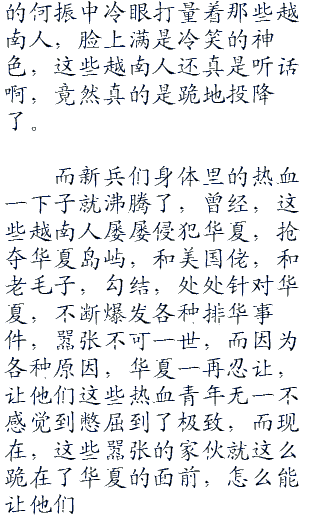 的何振中冷眼打量着那些越
南人，脸上满是冷笑的神
色，这些越南人还真是听话
啊，竟然真的是跪地投降
了。
而新兵们身体里的热血
一下子就沸腾了，曾经，这
些越南人屡屡侵犯华夏，抢
夺华夏岛屿，和美国佬，和
老毛子，勾结，处处针对华
夏，不断爆发各种排华事
件，嚣张不可一世，而因为
各种原因，华夏一再忍让，
让他们这些热血青年无一不
感觉到憋屈到了极致，而现
在，这些嚣张的家伙就这么
跪在了华夏的面前，怎么能
让他们